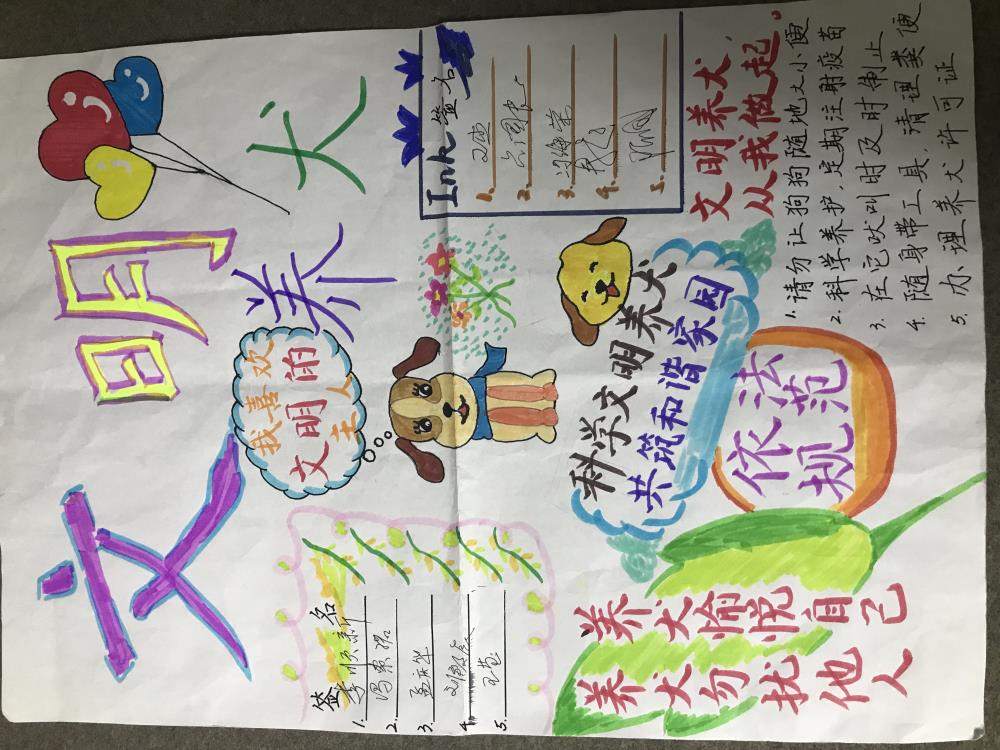 文明养犬
签名
1. 李顺新
2.
3. 孟庆华
4.
5.
我喜欢
文明的
主人
Ink 签名
1.
2.
3.
4.
5.
养犬愉悦自己
养犬勿扰他人
科学文明养犬
共筑和谐家园
依法
规范
文明养犬,
从我做起。
1. 请勿让狗狗随地大小便
2. 科学养护,定期注射疫苗
3. 在它吠叫时及时制止
4. 随身带工具,清理粪便
5. 办理养犬许可证